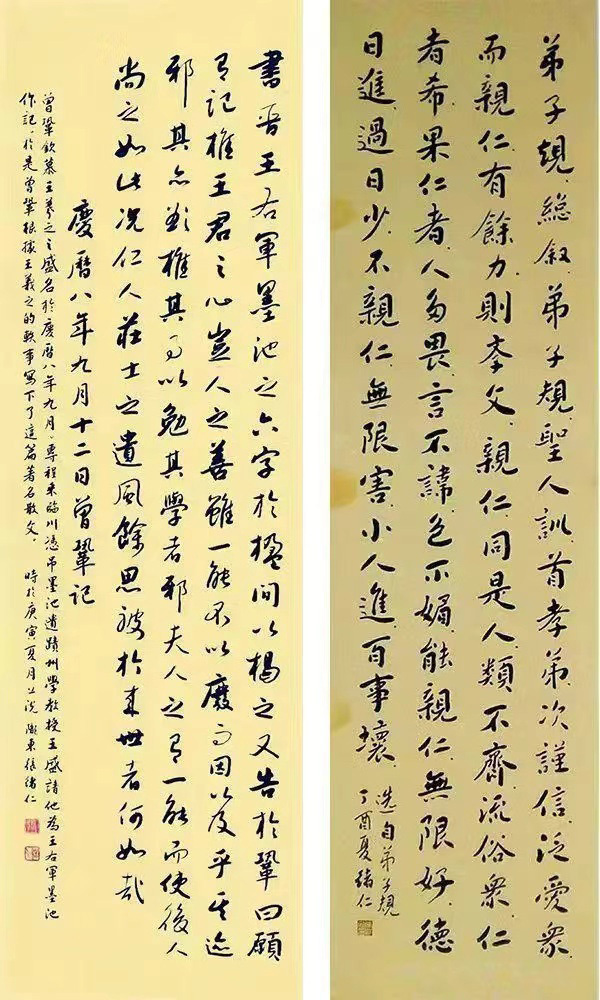 弟子規總叙弟子規聖人訓首孝弟次謹信泛愛衆
而親仁有餘力則斈文親仁同是人類不齊流俗衆仁
者希果仁者人多畏言不諱色不媚能親仁無限好德
日進過日少不親仁無限害小人進百事壞
選自弟子規
丁酉夏緒仁
書晉王右軍墨池之六字於楹間以揭之又告於鞏曰願
有記推王君之心豈人之善雖一能不以廢而因以及乎其迹
邪其亦欲推其事以勉其學者邪夫人之有一能而使後人
尚之如此况仁人莊士之遺風餘思被於來世者何如哉
慶曆八年九月十二日曾鞏記
曾鞏欽慕王羲之之盛名於慶曆八年九月、專程來臨川憑吊墨池遺蹟州學教授王盛請他為王右軍墨池
作記、於是曾鞏根據王羲之的軼事寫下了這篇著名散文。 時於庚寅夏月上浣 隴東張緒仁